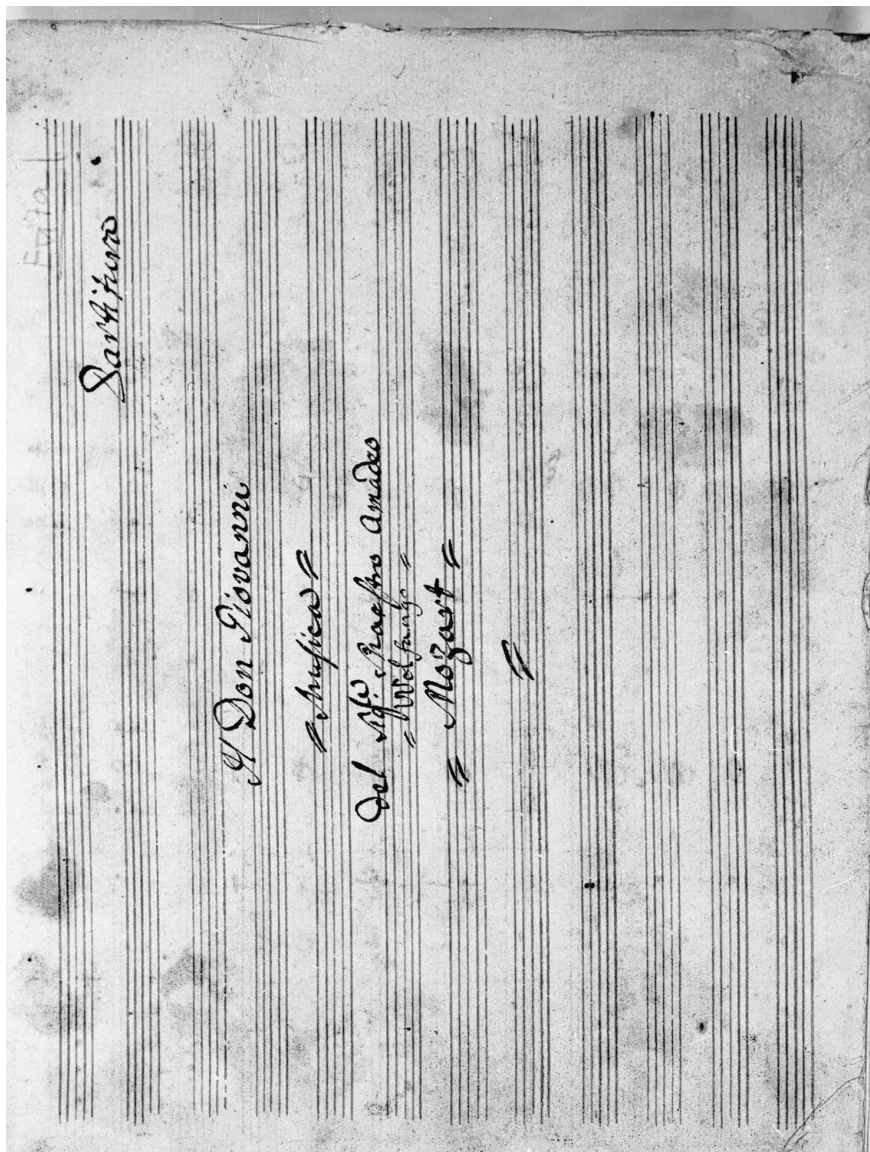 Partitura
Il Don Giovanni
Musica
del Sigre Maestro Amadeo
Wolfgango
Mozart